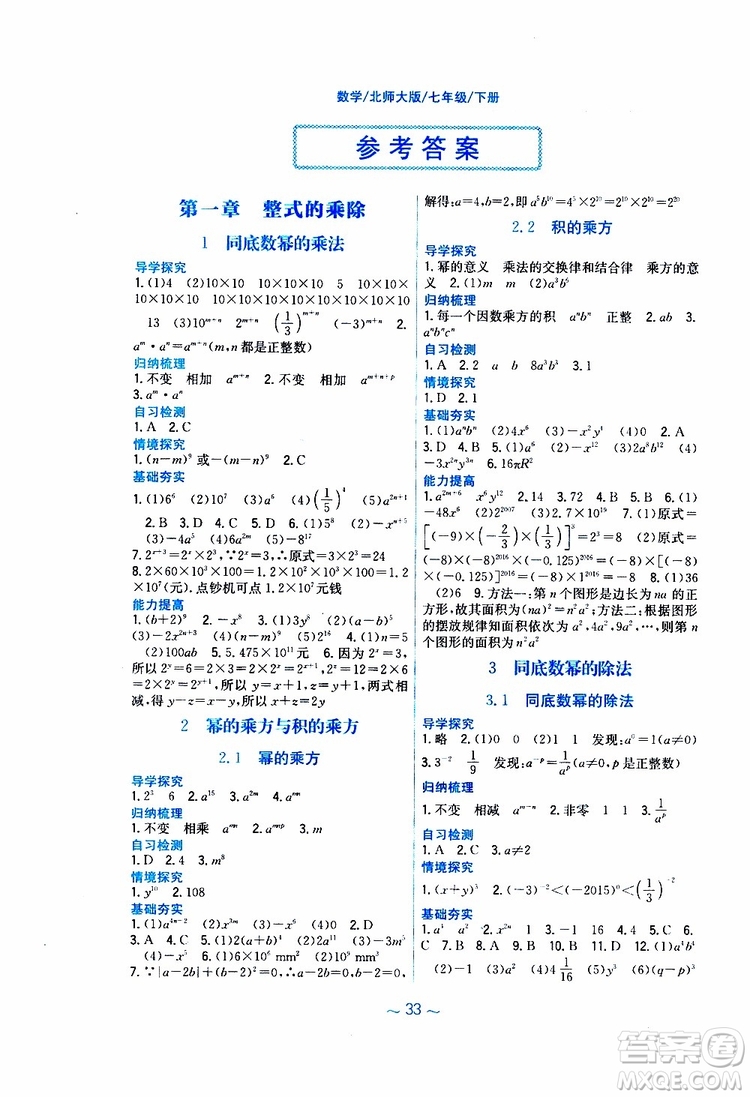 数学/北师大版/七年级/下册
参考答案
第一章 整式的乘除
1 同底数幂的乘法
导学探究
1.(1)4 (2)10×10 10×10×10 5 10×10×
10×10×10 10×10×10×10×10×10×10×10
13 (3)10^{m+n} 2^{m+n} (1/3)^{m+n} (-3)^{m+n} 2.
a^m·a^n=a^{m+n}(m,n都是正整数)
归纳梳理
1.不变 相加 a^{m+n} 2.不变 相加 a^{m+n+p}
3.a^m·a^n
自习检测
1.A 2.C
情境探究
1.(n-m)^9或-(m-n)^9 2.C
基础夯实
1.(1)6^6 (2)x^7 (3)a^6 (4)(1/5)^4 (5)a^{2n+1}
2.B 3.D 4.D 5.B 6.(1)5^8 (2)-x^5
(3)(-4)^5 (4)6a^{2m} (5)(-8)^{2n+1}
7.2^{x+3}=2^x·2^3,∵2^x=3,∴原式=3×2^3=24
8.2×60×10^3×10^2=120×10^5=1.2×10^2×10^5=
1.2×10^7(元).点钞机可点1.2×10^7元钱
能力提高
1.(b+2)^{9} 2.-x^6 3.(1)3y^8 (2)(a-b)^5
(3)-x^{2n+3} (4)-(x-y)^6 4.(1)120
(2)100ab 5.5.475×10^{11}元 6.因为2^x=3,
所以2^y=6=2×3=2×2^x=2^{x+1},2^z=12=
2×6=2×2^y=2^{y+1}.所以y=x+1,z=y+1,两式相
减,得y-z=x-y,所以x+z=2y
2 幂的乘方与积的乘方
2.1 幂的乘方
导学探究
1.2^5 6 2.a^{15} 3.a^{2m} a^{3n} a^{mn}
归纳梳理
1.不变 相乘 a^{mn} 2.a^{mnp} 3.m
自习检测
1.D 2.4 3.m^8
情境探究
1.y^{10} 2.108
基础夯实
1.(1)a^{4n-2} (2)x^{3m} (3)a^{2m+2} 2.(1)2 (2)2
3.A 4.C 5.(1)2(a+b)^6 (2)-2y^6 (3)a^{12}
(4)-x^5 6.(1)6×10^6 mm^2 (2)10^9 mm^3
7.∵|a-2b|+(b-2)^2=0,∴a-2b=0,b-2=0,
解得:a=4,b=2,即a^5b^{10}=4^5×2^{10}=2^{10}×2^{10}=2^{20}
2.2 积的乘方
导学探究
1.幂的意义 乘法的交换律和结合律 乘方的
意义 2.(1)m m (2)a^3b^3
归纳梳理
1.每一个因数乘方的积 a^nb^n 正整 2.(4)3.
a^nb^nc^n
自习检测
1.A 2.2 a b 8a^3b^3 3.1
情境探究
1.D 2.D
基础夯实
1.(1)a^nb^n (2)4x^6 (3)-x^6 (4)0 2.A
3.D 4.B 5.(1)a^6 (2)4×10^{12} (3)-x^{15} (4)
-3x^{3n}y^{3n} 6.16πR^2
能力提高
1.a^{2m+6} x^6y^{12} 2.14 3.32 4.72 5.(1)
-48x^6 (2)2^{2007} (3)2.7×10^{19} 6.(1)原式=
[(-9)×(-2/3)×(1/3)]^3=2^3=8 (2)原式=
(-8)×(-8)^{2016}×(-0.125)^{2016}=(-8)×[(-
8)×(-0.125)]^{2016}=(-8)×1=-8 8.(1)36
(2)6 9.方法一:第n个图形是边长为na的正
方形,故其面积为(na)^2=n^2a^2;方法二:根据图形
的摆放规律知面积依次为a^2,4a^2,9a^2…,则第n
个图形的面积为n^2a^2
3 同底数幂的除法
3.1 同底数幂的除法
导学探究
1.略 2.(1)0 0 (2)1 1 发现:a^0=1(a≠0)
3.3^{-2} 1/9 发现:a^{-p}=1/a^p(a≠0,p是正整数)
归纳梳理
1.不变 相减 a^{m-n} 2.非零 1 1 3.1/a^p
自习检测
1.A 2.C 3.a≠2
情境探究
1.(x+y)^3 2.(-3)^{-2}<(-2015)^0<(1/3)^{-2}
基础夯实
1.a^4 2.-8 3.1 16 4.C 5.C 6.
C 7.C 8.C 9.B 10.C 11.D 12.(1)a^4
(2)-1 (3)a^2 (4)1/16 (5)x^2 (6)(p-q)^5
～33～
答案圈
MXQE.COM